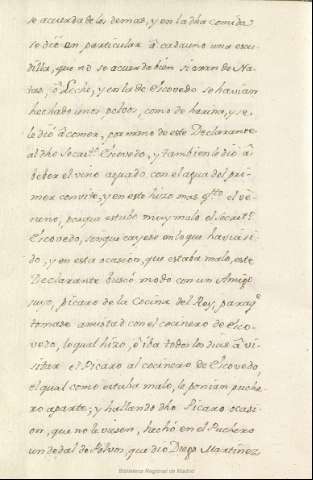 se acuerda de los demas, y en la dha comida
se dió en particular â cada uno una escu-
dilla, que no se acuerda bien si eran de Na-
tas, ô Leche, y en la de Escovedo se havian
hechado unos polvos, como de harina, y se
le dió â comer, por mano de este Declarante
al dho Secret.º Escovedo, y tambien le dió â
bebor el vino aguado con el agua del pri-
mer convite; y en esto hizo mas el ve-
neno, porque estubo muy malo el Secret.º
Escovedo, sin que cayese en lo que havia si-
do, y en esta ocasion, que estaba malo, este
Declarante buscó modo con un Amigo
suyo, picaro de la Cocina del Rey, para q.e
tomase amistad con el cocinero de Esco-
vedo, lo qual hizo, ê iba todos los dias â vi-
sitar el Picaro al cocinero de Escovedo,
el qual como estaba malo, le ponian puche-
ro aparte; y hallando dho Picaro ocasi-
on, que no le viesen, hechó en el Puchero
un dedal de Polvos, que dio Diego Martinez
Biblioteca Regional de Madrid